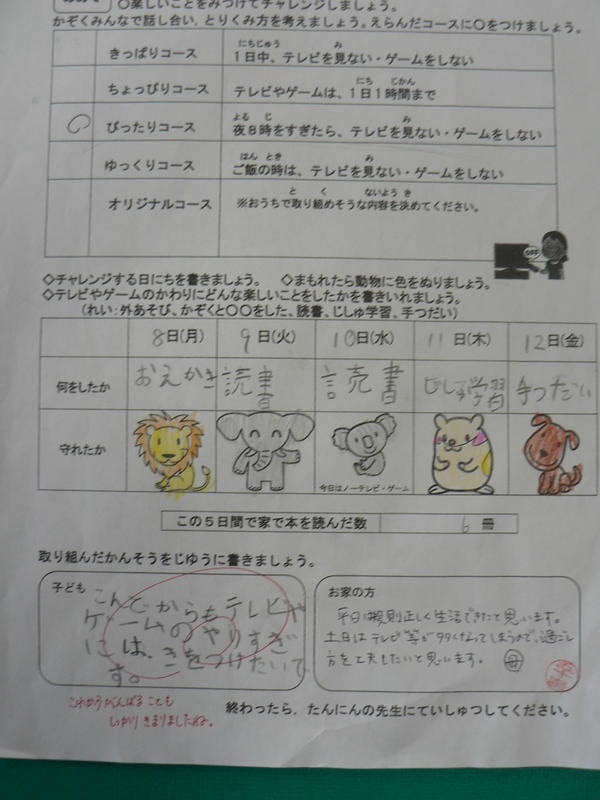 ○楽しいことをみつけてチャレンジしましょう。
かぞくみんなで話し合い，とりくみ方を考えましょう。えらんだコースに〇をつけましょう。
きっぱりコース
にちじゅう み
1日中、テレビを見ない・ゲームをしない
ちょっぴりコース
にち じかん
テレビやゲームは、1日1時間まで
ぴったりコース
よる じ み
夜8時をすぎたら、テレビを見ない・ゲームをしない
ゆっくりコース
はん とき み
ご飯の時は、テレビを見ない・ゲームをしない
オリジナルコース
と く ないよう き
※おうちで取り組めそうな内容を決めてください。
OFF
◇チャレンジする日にちを書きましょう。 ◇まもれたら動物に色をぬりましょう。
◇テレビやゲームのかわりにどんな楽しいことをしたかを書きいれましょう。
（れい：外あそび、かぞくと〇〇をした、読書、じしゅ学習、手つだい）
8日(月) 9日(火) 10日(水) 11日(木) 12日(金)
何をしたか おえかき 読書 読書 じしゅ学習 手つだい
守れたか
今日はノーテレビ・ゲーム
この5日間で家で本を読んだ数 6 冊
取り組んだかんそうをじゆうに書きましょう。
子ども
こんどからもテレビや
ゲームのやりすぎ
には、きをつけたいで
す。
お家の方
平日は規則正しく生活できたと思います。
土日はテレビ等が多くなってしまうので、過ごし
方を工夫したいと思います。 母
これからがんばることも
しっかりきまりましたね。
終わったら，たんにんの先生にていしゅつしてください。